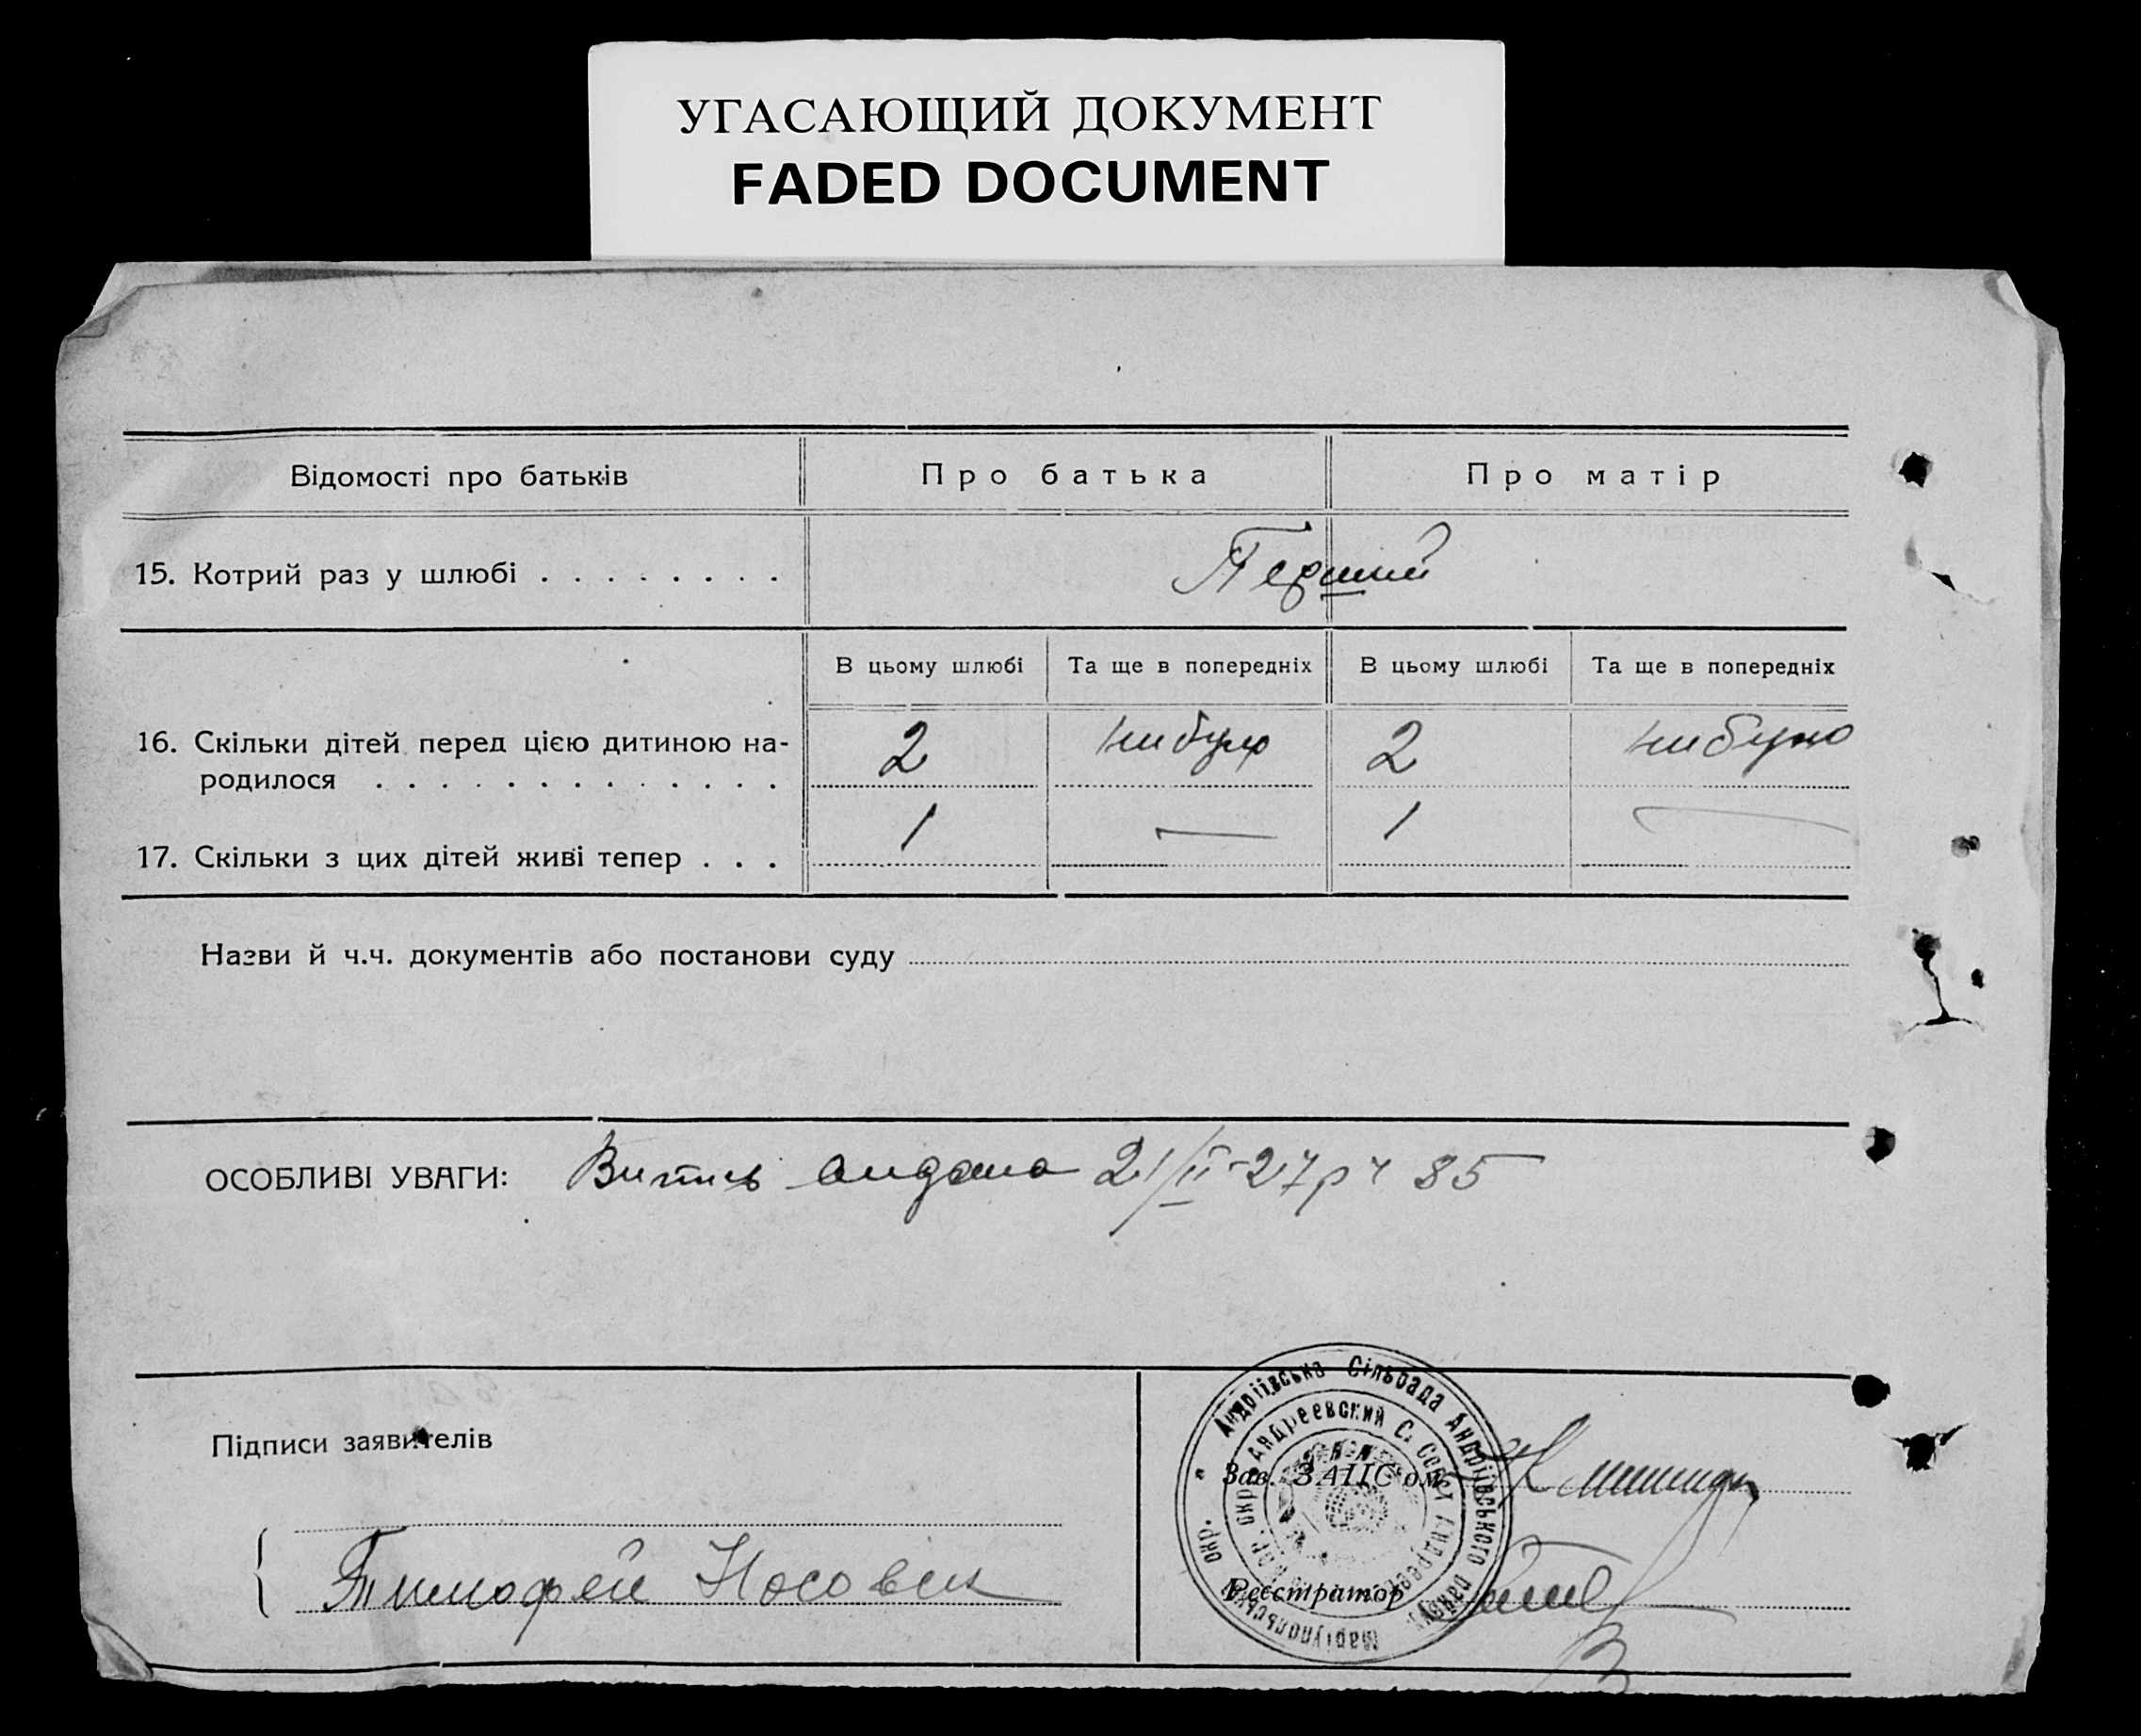 УГАСАЮЩИЙ ДОКУМЕНТ
FADED DOCUMENT
Відомості про батьків Про батька Про матір
15. Котрий раз у шлюбі . . . . . . . . Перший
В цьому шлюбі Та ще в попередніх В цьому шлюбі Та ще в попередніх
16. Скільки дітей перед цією дитиною на-
родилося . . . . . . . . . . . . . 2 нибуло 2 нибуло
17. Скільки з цих дітей живі тепер . . . 1 — 1 —
Назви й ч.ч. документів або постанови суду
ОСОБЛИВІ УВАГИ: Витяг видано 21/II-27р ч 85
Андріївська Сільрада Андріївського району Маріупольськ. окр.
Андреевский С. Совет
Підписи заявителів
Зав. ЗАЦС'ом
Тимофей Носовск
Реєстратор